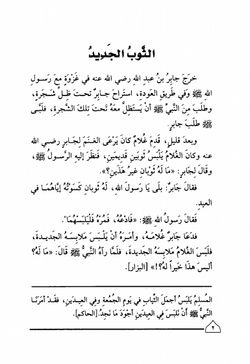 الثَّوبُ الجَديدُ
خرَجَ جابرُ بنُ عبدِ اللهِ رضي الله عنه في غَزوَةٍ معَ رَسولِ
اللهِ ﷺ وفي طَريقِ العَودةِ، استَراحَ جابرٌ تَحتَ ظِلِّ شَجرةٍ،
وطَلَبَ مِنَ النَّبيِّ ﷺ أنْ يَستَظِلَّ معَهُ تَحتَ تِلكَ الشَّجرةِ، فَلَبَّى
ﷺ طلَبَ جابرٍ
وبعدَ قليلٍ، قَدِمَ غُلامٌ كانَ يَرعَى الغَنَمَ لِجَابرٍ رضي الله
عنه وكانَ الغُلامُ يَلبَسُ ثَوبَينِ قَديمَينِ، فنَظَرَ إليهِ الرَّسولُ ﷺ،
وقالَ لِجابرٍ: «مَا لَهُ ثَوبَانِ غَيرُ هَذَينِ؟».
فقالَ جَابرٌ: بلَى يَا رَسولَ اللهِ، لَهُ ثَوبَانِ كَسَوتُهُ إيَّاهُمَا في
العيدِ
فقالَ رَسولُ اللهِ ﷺ: «فَادْعُهُ، فَمُرْهُ فَلْيَلبَسْهُمَا".
فدَعَا جَابرٌ غُلامَهُ، وأمَرَهُ أنْ يَلبَسَ مَلابِسَهُ الجَديدةَ،
فلَبِسَ الغُلامُ مَلابِسَهُ الجَديدةَ، فلَمَّا رآهُ النَّبيُّ ﷺ قالَ: «مَا لَهُ؟
أليسَ هَذَا خَيراً لَهُ؟!» [البزار].
المُسلِمُ يَلبَسُ أجمَلَ الثِّيابِ في يَومِ الجُمعةِ وفي العِيدَينِ، فقَدْ أمَرَنَا
النَّبيُّ ﷺ أنْ نَلبَسَ في العِيدَينِ أجوَدَ مَا نَجِدُ [الحاكم].
٢